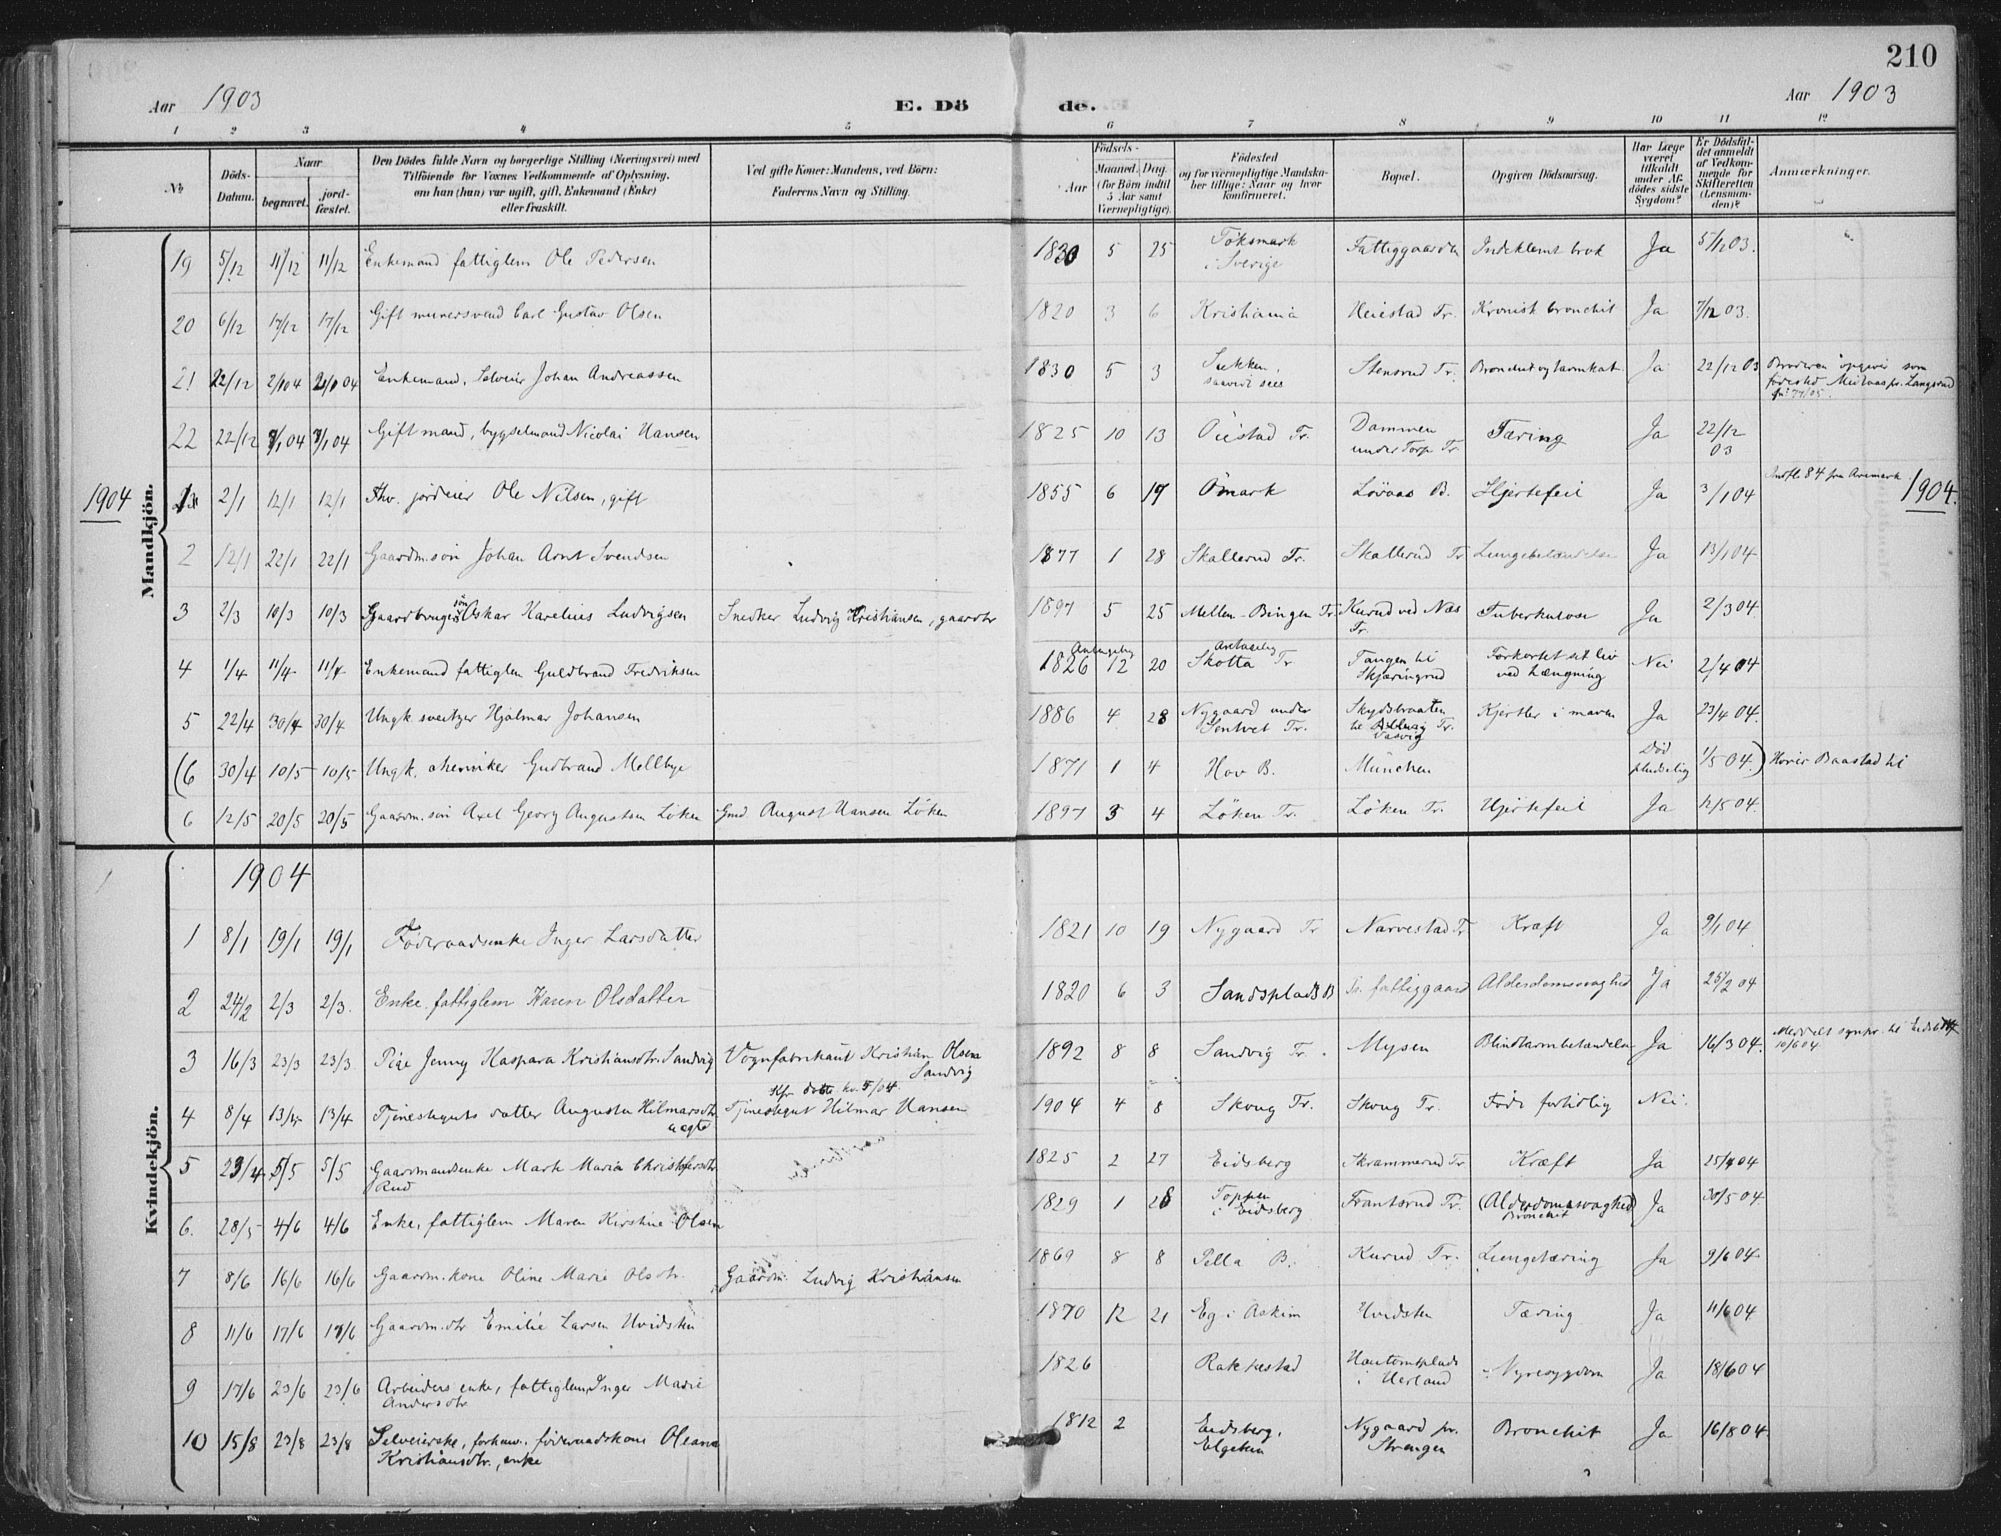 210
Aar 1903 E. Dö de. Aar 1903
1 2 3 4 5 6 7 8 9 10 11 12
No
Döds-Datum.
Naar
begravet.
jord-fæstet.
Den Dödes fulde Navn og borgerlige Stilling (Næringsvei) med Tilföiende for Voxnes Vedkommende af Oplysning, om han (hun) var ugift, gift, Enkemand (Enke) eller fraskilt.
Ved gifte Koner: Mandens, ved Börn: Faderens Navn og Stilling.
Födsels-
Aar
Maaned. Dag. (for Börn indtil 5 Aar samt Værnepligtige).
Födested og for værnepligtige Mandskaber tillige: Naar og hvor konfirmeret.
Bopæl.
Opgiven Dödsaarsag.
Har Læge været tilkaldt under Afdödes sidste Sygdom?
Er Dödsfaldet anmeldt af Vedkommende for Skifteretten (Lensmanden)?
Anmærkninger.
Mandkjön.
19 5/12 11/12 11/12 Enkemand fattiglem Ole Pedersen 1830 5 25 Töksmark i Sverige Fattiggaarden Indeklemt brok Ja 5/12 03.
20 6/12 17/12 17/12 Gift murersvend Carl Gustav Olsen 1820 3 6 Kristiania Heiestad Tr. Kronisk bronchit Ja 7/12 03.
21 22/12 2/1 04 2/1 04 Enkemand, Selveier Johan Andreassen 1830 5 3 Stensrud Tr. Ja 22/12 03 Broderen opgiver som födested
22 22/12 04 04 Gift mand, bygselmand Nicolai Hansen 1825 10 13 Öiestad Tr. Dammen under Torp Tr. Tæring Ja 22/12 03
1904
1 2/1 12/1 12/1 Fhv. jordeier Ole Nilsen, gift 1855 6 17 Ömark Lövaas B. Hjertefeil Ja 3/1 04 Indfl. 84 fra Aremark 1904.
2 12/1 22/1 22/1 Gaardm. sön Johan Arnt Svendsen 1877 1 28 Skallerud Tr. Skallerud Tr Lungebetændelse Ja 13/1 04
3 2/3 10/3 10/3 Gaardbrugers sön Oskar Karelius Ludvigsen Snedker Ludvig Kristiansen, gaardbr 1897 5 25 Mellem-Bingen Tr Kurud ved Næs Tr. Tuberkulose Ja 2/3 04.
4 1/4 11/4 11/4 Enkemand fattiglem Guldbrand Fredriksen 1826 Antagelig 12 20 Antagelig Skotta Tr Tangen til Skjæringrud Forkortet sit liv ved hængning Nei 2/4 04
5 22/4 30/4 30/4 Ungk. sveitzer Hjalmar Johansen 1886 4 28 Nygaard under Sentvet Tr. Skydsbraaten Tr. Kjertler i maven Ja 23/4 04.
(6 30/4 10/5 10/5 Ungk. chemiker Gudbrand Mellbye 1871 1 4 Hov B. München Död pludselig 1/5 04.) Hörer Baastad til
6 12/5 20/5 20/5 Gaardm. sön Axel Georg Augustsen Löken Gmd August Hansen Löken 1897 3 4 Löken Tr. Löken Tr. Hjertefeil Ja 12/5 04.
Kvindekjön.
1904
1 8/1 19/1 19/1 Föderaadsenke Inger Larsdatter 1821 10 19 Nygaard Tr Narvestad Tr Kræft Ja 9/1 04
2 24/2 2/3 2/3. Enke fattiglem Karen Olsdatter 1820 6 3 Sandsplads B Tr. fattiggaard Alderdomssvaghed Ja 25/2 04
3 16/3 23/3 23/3 Pige Jenny Kaspara Kristiansdtr. Sandvig Vognfabrikant Kristian Olsen Sandvig 1892 8 8 Sandvig Tr. Mysen Blindtarmbetændelse Ja 16/3 04. 10/6 04
4 8/4 13/4 13/4 Tjenesteguts datter Augusta Hilmarsdtr ægte Tjenestegut Hilmar Hansen 1904 4 8 Skoug Tr. Skoug Tr. Född fortidlig Nei.
5 23/4 5/5 5/5 Gaardmandsenke Marte Maria Christofersdtr Rud 1825 2 27 Eidsberg Skrammerud Tr Kræft Ja 25/4 04
6. 28/5 4/6 4/6 Enke, fattiglem Maren Kirstine Olsen 1829 1 28 Toppen i Eidsberg Frantsrud Tr. (Alderdomssvaghed) Bronchit Ja 30/5 04
7 8/6 16/6 16/6 Gaardm. kone Oline Marie Olsdtr. Gaardm. Ludvig Kristiansen 1869 8 8 Pella B. Kurud Tr. Lungetæring Ja 9/6 04
8 11/6 17/6 17/6 Gaardm. dtr Emilie Larsen Hvidsten 1870 12 21 Eg i Askim Hvidsten Tæring Ja 11/6 04
9 17/6 23/6 23/6 Arbeiders enke, fattiglem Inger Marie Andersdtr 1826 Rakkestad Nyresygdom Ja 18/6 04
10 15/8 23/8 23/8 Selveierske, forhenv. föderaadskone Oleana Kristiansdtr., enke 1812 2 Eidsberg, Nygaard pr. Strengen Bronchit Ja 16/8 04.